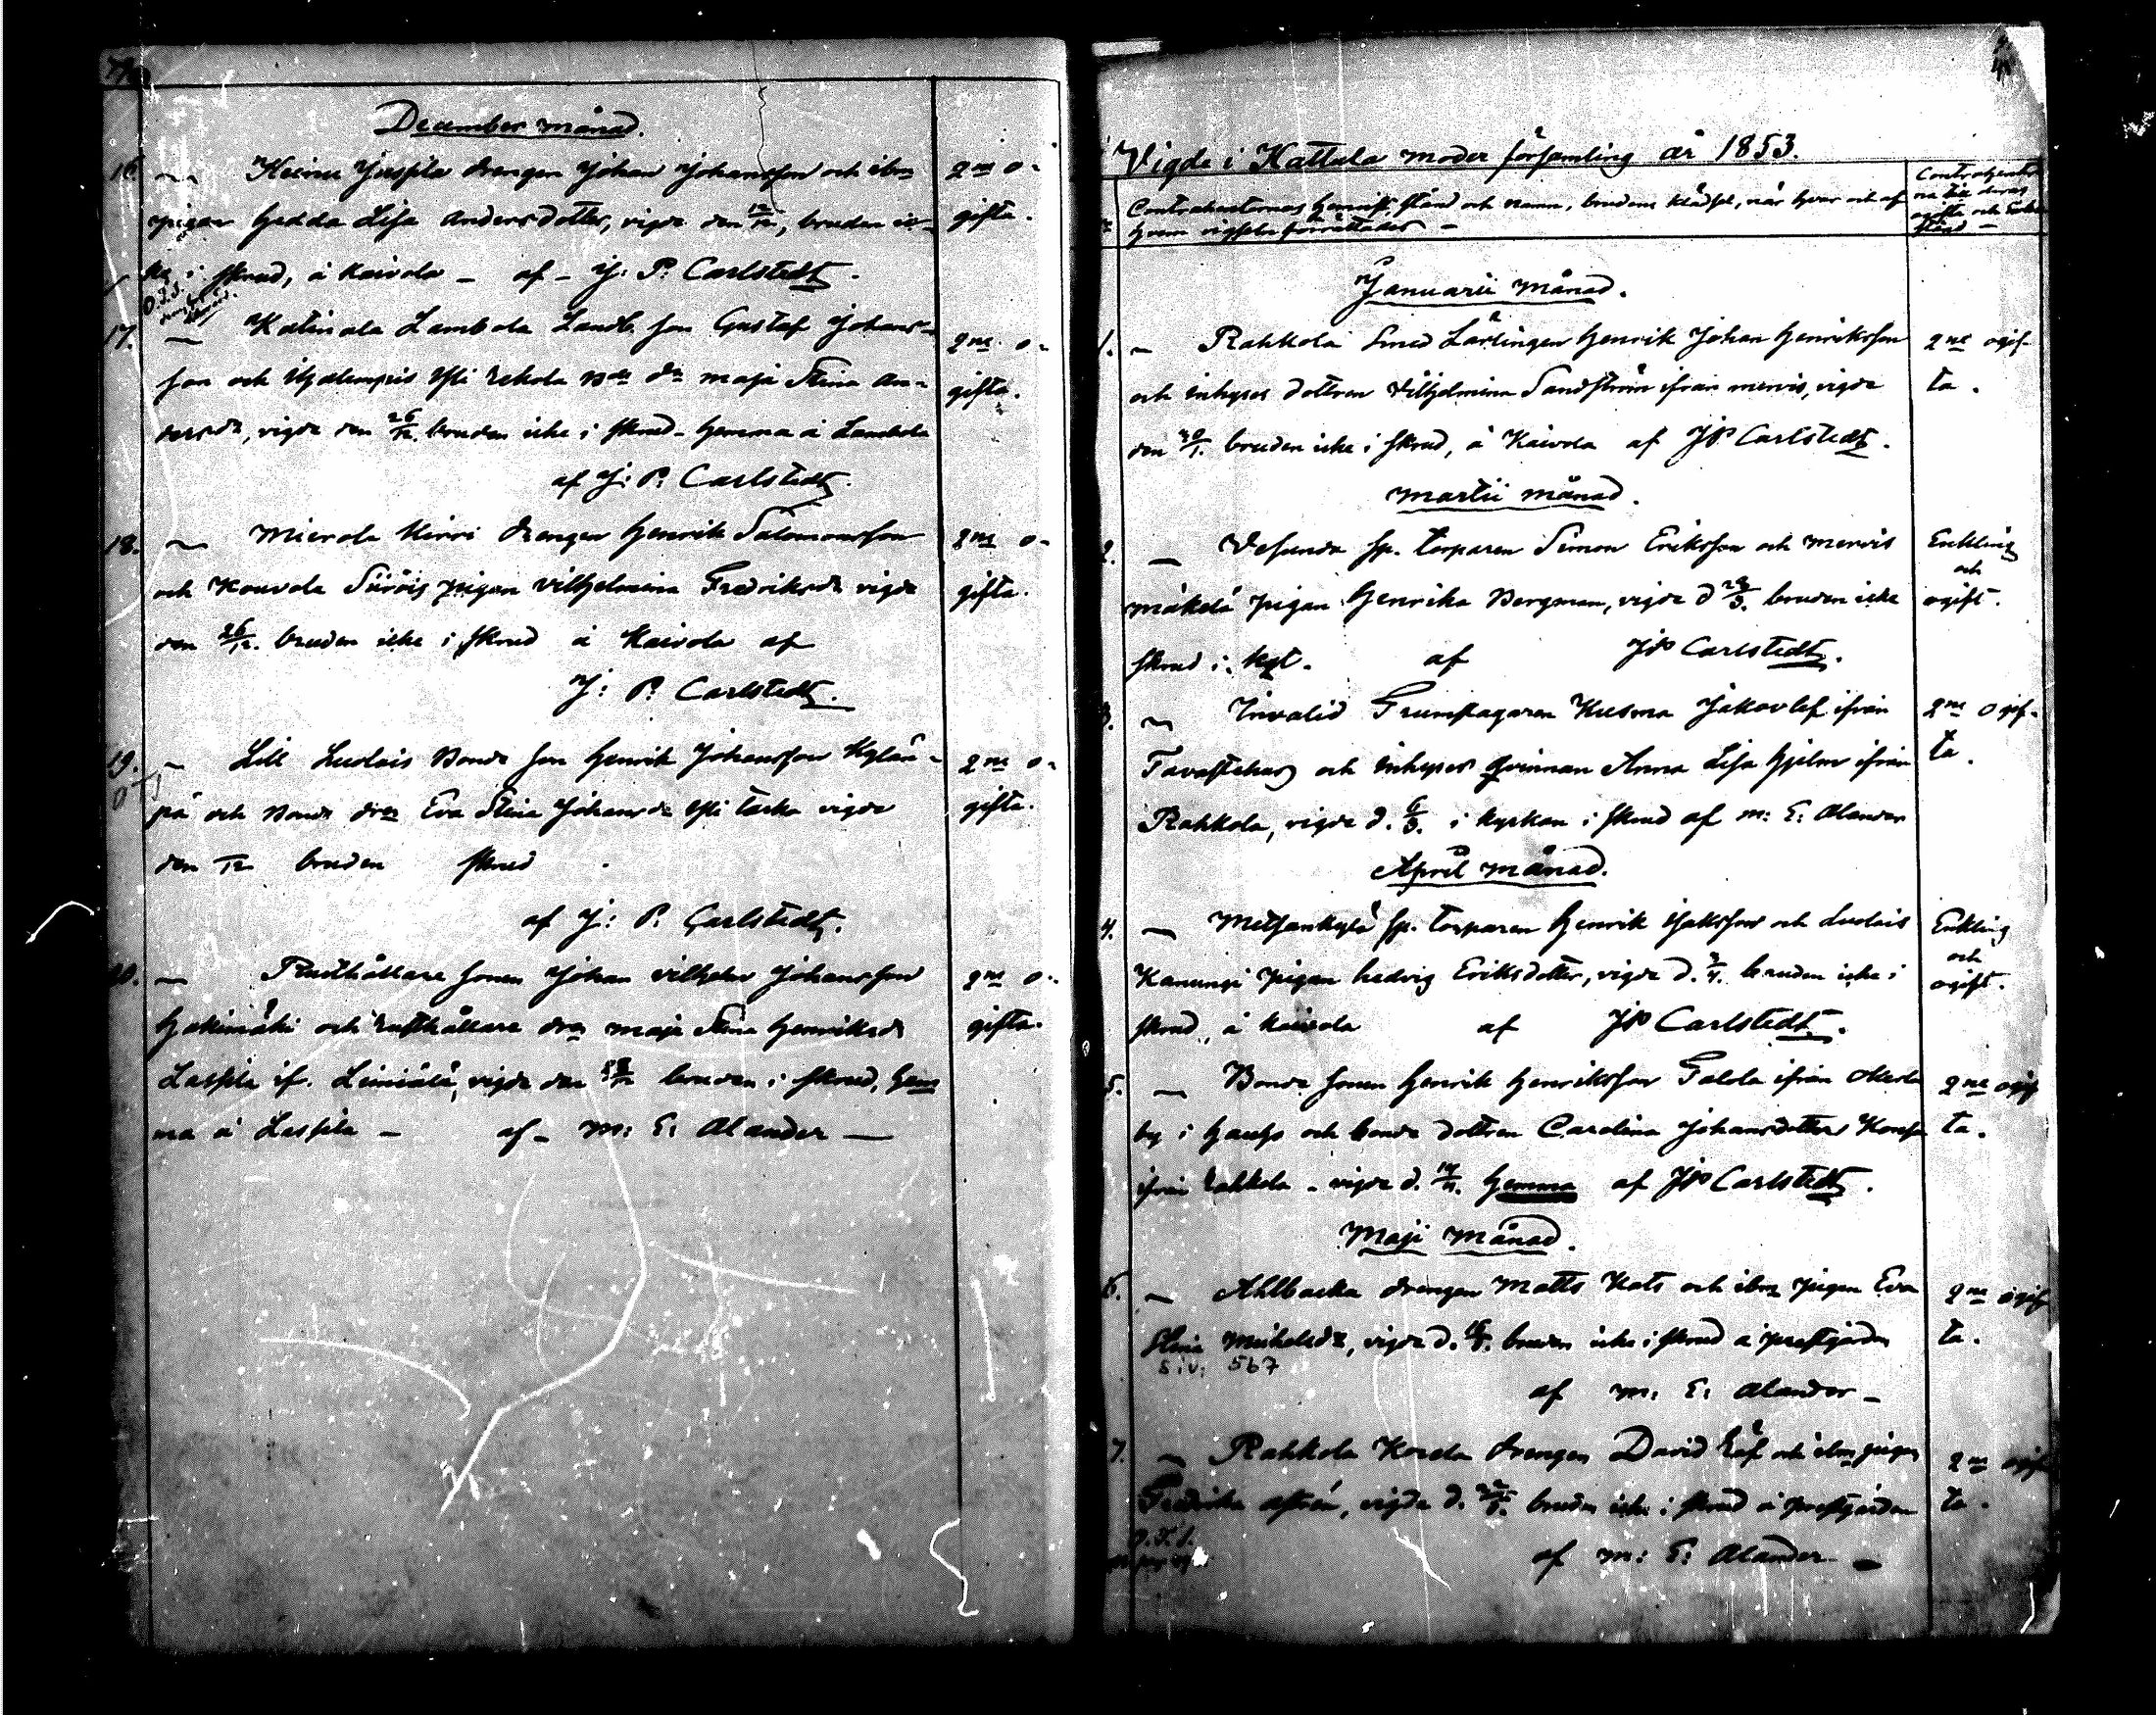 December månad.
16. Heinu Jussila drengen Johan Johansson och ibm 2ne o-
pigan Hedda Lisa Andersdotter, vigde den 12/12, bruden ic- gifta.
ke i skrud, å Kaivola - af - J: P: Carlstedt.
17. Katinala Lambola Landb. son Gustaf Johans- 2ne o-
son och Yli Rekola Bde dr Maja Stina An- gifta.
dersdr, vigde den 26/12. bruden icke i skrud - hemma å Lambola
af J: P: Carlstedt.
18. Mierola Hirvi drengen Henrik Salomonsson 2ne o-
och pigan Vilhelmina Fredriksdr vigde gifta.
den 26/12. bruden icke i skrud å Kaivola af
J: P: Carlstedt.
19. Lill Luolais Bonde son Henrik Johansson Kylän- 2ne o-
pä och Bonde dren Eva Stina Johansdr Yli vigde gifta.
den /12 bruden skrud
af J: P: Carlstedt.
20. Rusthållare sonen Johan Vilhelm Johansson 2ne o-
Hakimäki och rusthållare dren Maja Stina Henriksdr gifta.
Lassila if. vigde den 28/12 bruden i skrud, hem
ma å Lassila - af - M: E: Alander -
Vigde i Hattula moder församling år 1853.
Contrahenternas hemvist, stånd och namn, brudens klädsel, när hvar och af
hvem vigseln förrättades -
Januarii månad.
1. Rahkola Smed Lärlingen Henrik Johan Henriksson 2ne ogif-
och inhyses dottren Vilhelmina Sandström ifrån Mervis, vigde ta.
den 30/1. bruden icke i skrud, å Kaivola af JP Carlstedt.
Martii månad.
2. Vesunda sp. torparen Simon Eriksson och Mervis Enkling
och
Mäkelä pigan Henrika Bergman, vigde d 28/3. bruden icke ogift.
skrud i af JP Carlstedt.
3. Invalid Kusma Jakovlef ifrån 2ne ogif-
Tavastehus och inhyses qvinnan Anna Lisa Hjelm ifrån ta.
Rahkola, vigde d. 6/3. i kyrkan i skrud af M: E: Alander
April månad.
4. Metsänkylä sp. torparen Henrik Isaksson och Luolais Enkling
och
pigan Hedvig Eriksdotter, vigde d. 3/4. bruden icke i ogift.
skrud, å Kaivola af JP Carlstedt.
5. Bonde sonen Henrik Henriksson Talola ifrån 2ne ogif
by i Hauho och bonde dottren Carolina Johansdotter ta.
ifrån Rahkola - vigde d. 17/4. hemma af JP Carlstedt.
Maji månad.
6. Ahlbacka drengen Matts Mats och ibm pigan Eva 2ne ogif
Stina Mickelsdr, vigde d. bruden icke i skrud å prestgården ta.
siv. 567
af M: E: Alander -
7. Rahkola drengen David Räf och ibm pigan 2ne ogif
Fredrika, vigde d. bruden icke i skrud å prestgården ta.
af M: E: Alander -